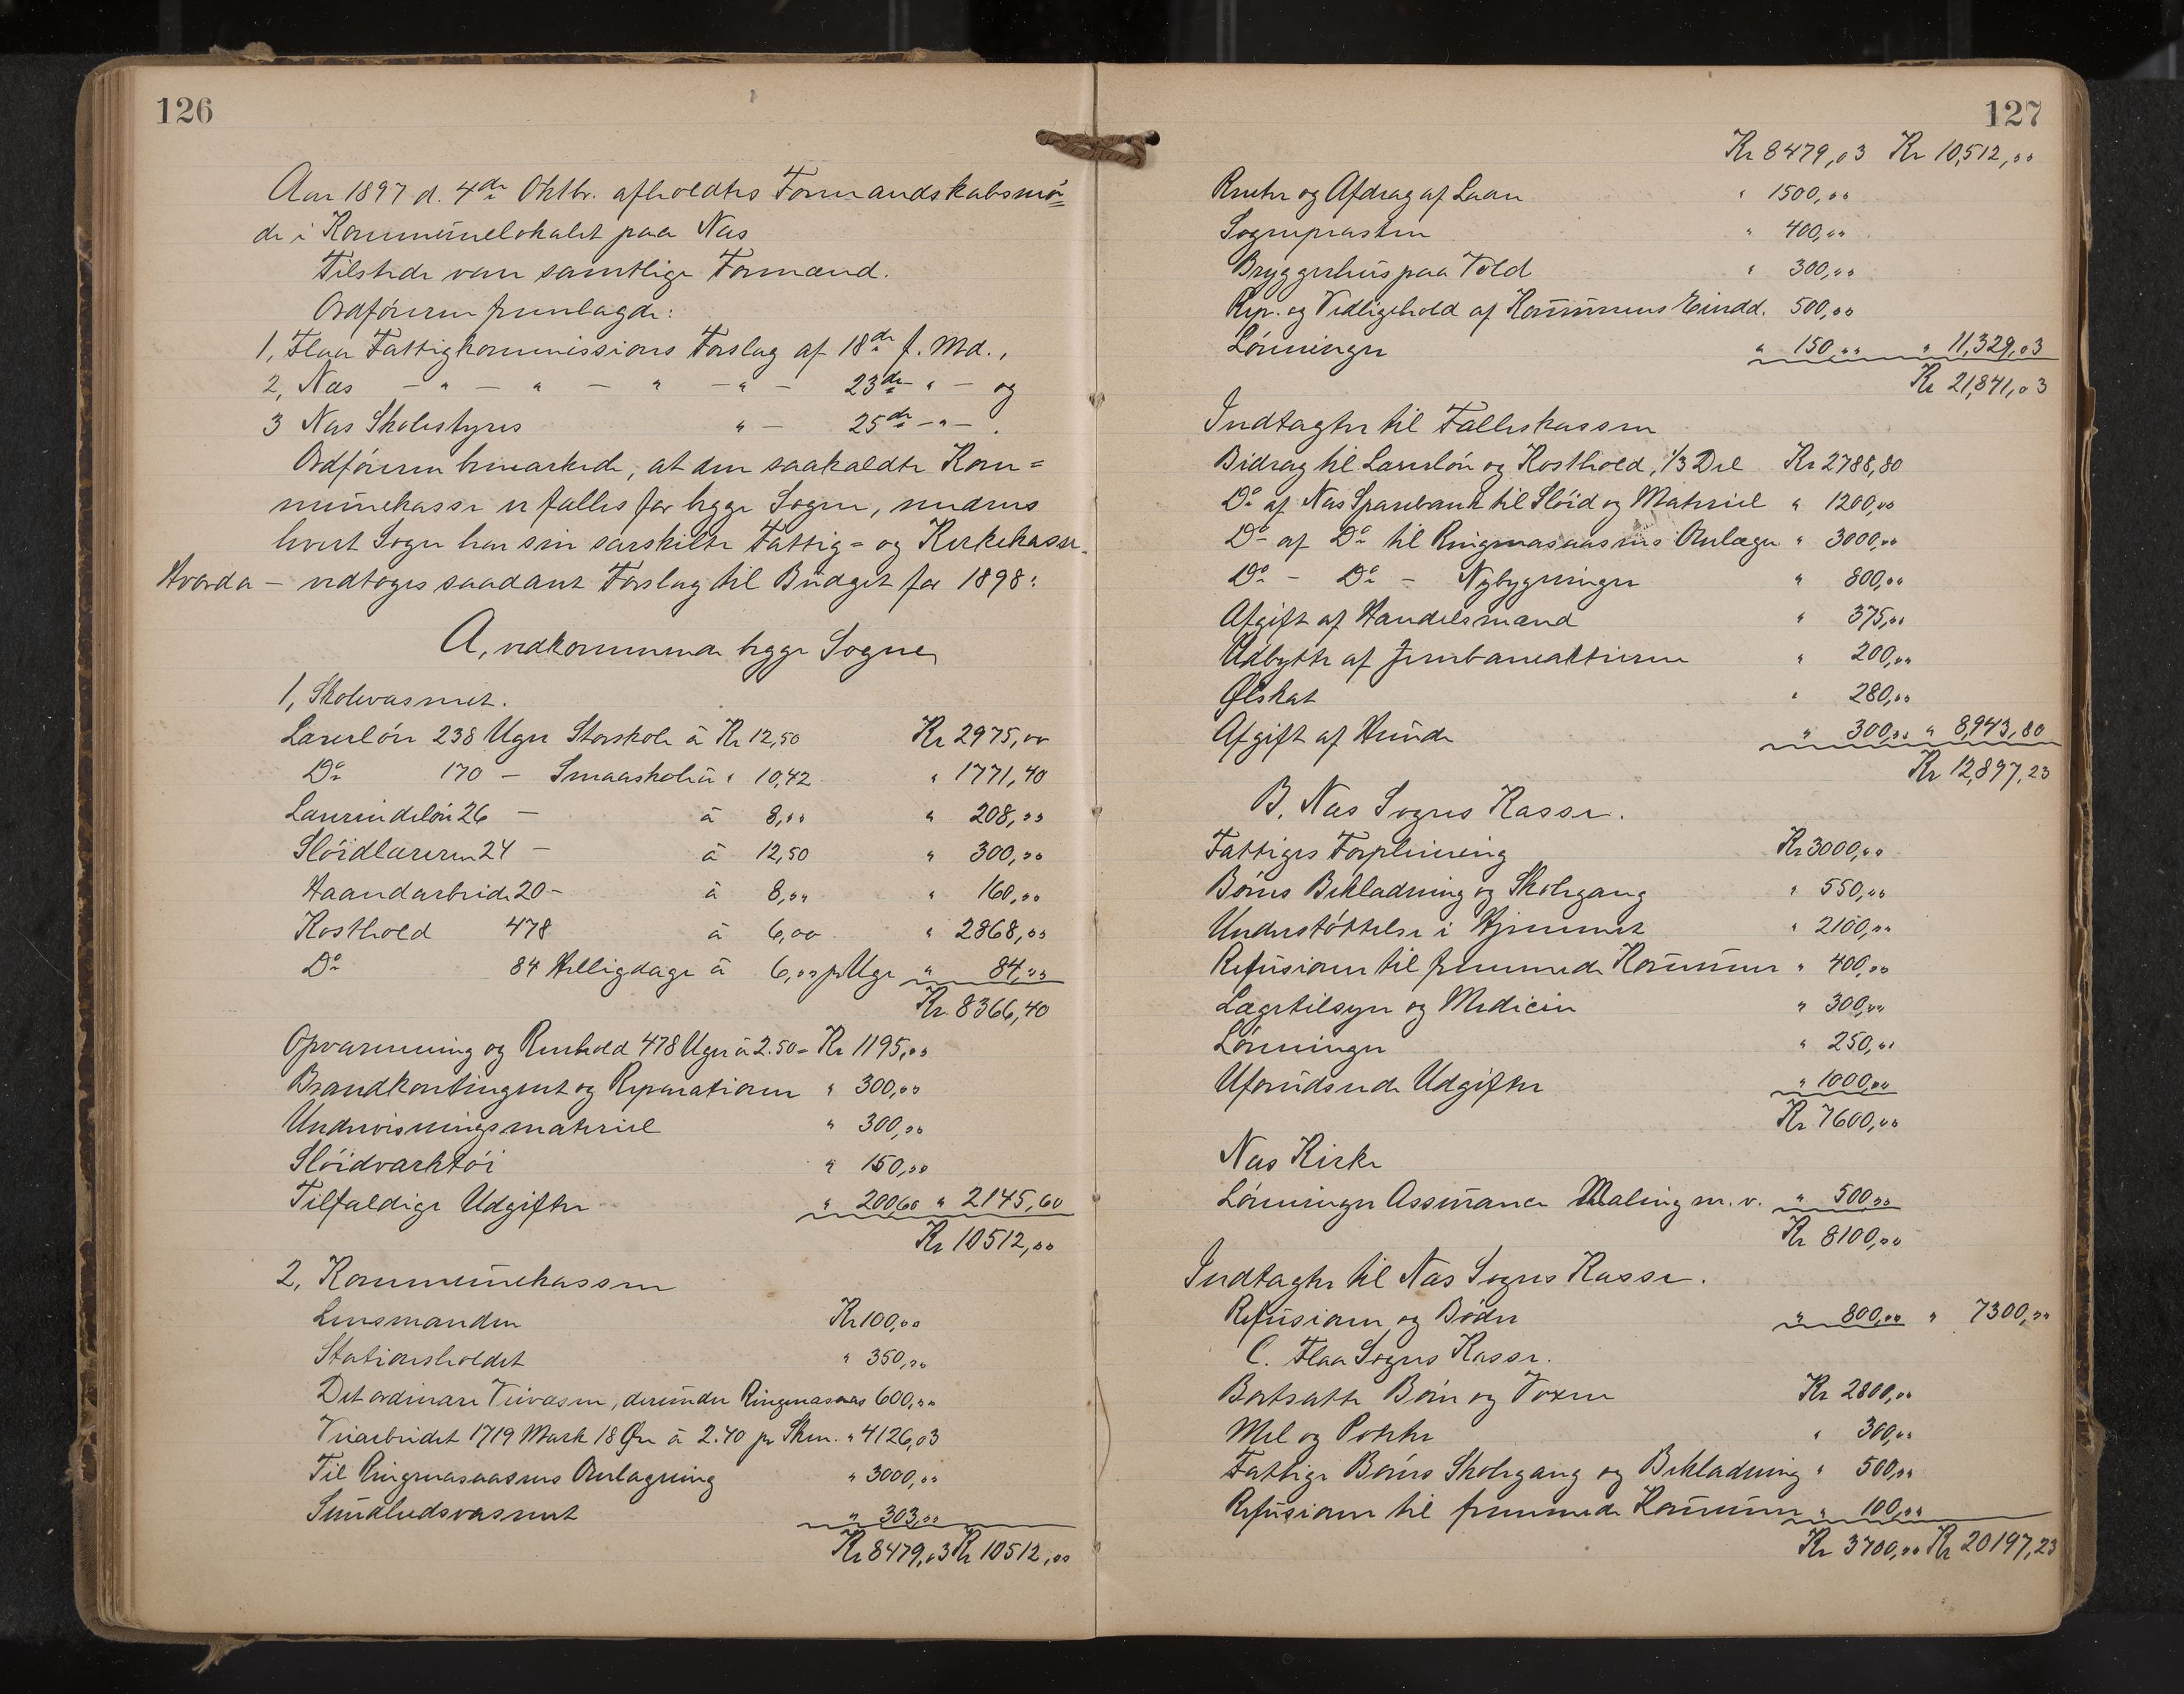 126
Aar 1897 d. 4de Oktbr. afholdtes Formandskabsmö-
de i Kommünelokalet paa Næs
Tilstede vare samtlige Formænd.
Ordföreren fremlagde:
1, Flaa Fattigkommissions Forslag af 18de f. Md.,
2, Næs — " — " — " — " — 23de — " — og
3 Næs Skolestyres " — 25de — " — .
Ordföreren bemærkede, at den saakaldte Kom=
münekasse er fælles for begge Sogne, medens
hvert Sogn har sin særskilte Fattig= og Kirkekasse.
Hvorda — vedtoges saadant Forslag til Büdget for 1898:
A, vedkommende begge Sogne,
1, Skolevæsenet.
Lærerlön 238 Uger Storskole à Kr 12,50 Kr 2975,00
Do 170 — Smaaskole à " 10,42 " 1771,40
Lærerindelön 26 — à 8,00 " 208,00
Slöidlæreren 24 — à 12,50 " 300,00
Haandarbeide 20 — à 8,00 " 160,00
Kosthold 478 à 6,00 " 2868,00
Do 84 Helligdage à 6,00 pr Uge " 84,00
Kr. 8366,40
Opvarmning og Renhold 478 Uger à 2.50 = Kr 1195,00
Brandkontingent og Reparationer " 300,00
Undervisningsmateriel " 300,00
Slöidværktöi " 150,00
Tilfældige Udgifter " 200,60 " 2145,60
Kr 10512,00
2, Kommünekassen
Lensmanden Kr 100,00
Stationsholdet " 350,00
Det ordinære Veivæsen, deründer Ringnesaas 600,00
Veiarbeidet 1719 Mark 18 Øre à 2.40 pr Skm. " 4126,03
Til Ringnesaasens Omlægning " 3000,00
Sündhedsvæsenet " 303,00
Kr 8479,03 Kr 10512,00
127
Kr 8479,03 Kr 10,512,00
Renter og Afdrag af Laan " 1500,00
Sognepræsten " 400,00
Bryggerhüs paa Told " 300,00
Rep. og Vedligehold af Kommünens Eiendd. 500,00
Lönninger " 150,00 " 11,329,03
Kr 21,841,03
Indtægter til Fælleskassen
Bidrag til Lærerlön og Kosthold, 1/3 Del Kr 2788,80
Do af Næs Sparebank til Slöid og Materiel " 1200,00
Do af Do til Ringnesaasens Omlægn " 3000,00
Do — Do — Nybygninger " 800,00
Afgift af Handelsmænd " 375,00
Udbytte af Jernbaneaktierne " 200,00
Ølskat " 280,00
Afgift af Hünde " 300,00 " 8,943,80
Kr 12,897,23
B. Næs Sogns Kasse.
Fattiges Forpleiening Kr 3000,00
Börns Beklædning og Skolegang " 550,00
Understöttelse i Hjemmet " 2100,00
Refüsioner til fremmede Kommüner " 400,00
Lægetilsyn og Medicin " 300,00
Lönninger " 250,00
Uforüdseede Udgifter " 1000,00
Kr 7600,00
Næs Kirke
Lönninger Assürance Maling m. v. " 500,00
Kr 8100,00
Indtægter til Næs Sogns Kasse.
Refüsioner og Böder " 800,00 " 7300,00
C. Flaa Sogns Kasse.
Bortsatte Börn og Voxne Kr 2800,00
Mel og Poteter " 300,00
Fattige Börns Skolegang og Beklædning " 500,00
Refüsioner til fremmede Kommüner " 100,00
Kr 3700,00 Kr 20197,23